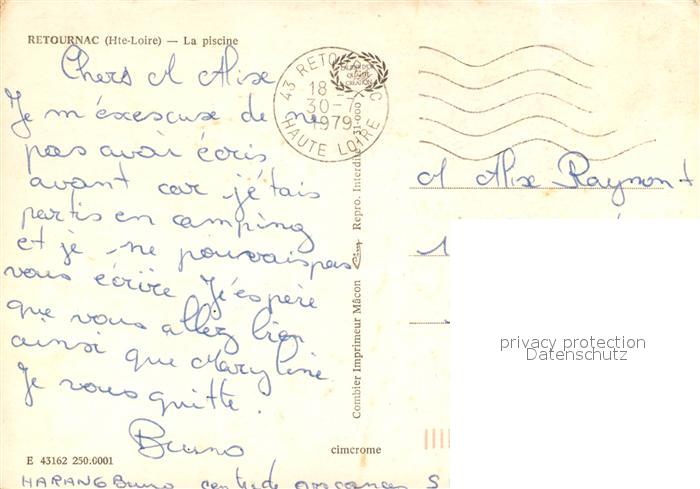 RETOURNAC (Hte-Loire) — La piscine
Chers A Alise
Je m'éxescuse de ne
pas avoir écris
avant car j'étais
partis en camping
et je ne pouvais pas
vous écrire J'éspère
que vous allez bien
ainsi que Maryline
Je vous quitte.
Bruno
E 43162 250.0001
cimcrome
HARANG Bruno
Combier Imprimeur Mâcon Cim Repro. Interdite 31-000
43 RETOURNAC
18
30-7
1979
HAUTE LOIRE
A Alise Raymont
1
privacy protection
Datenschutz